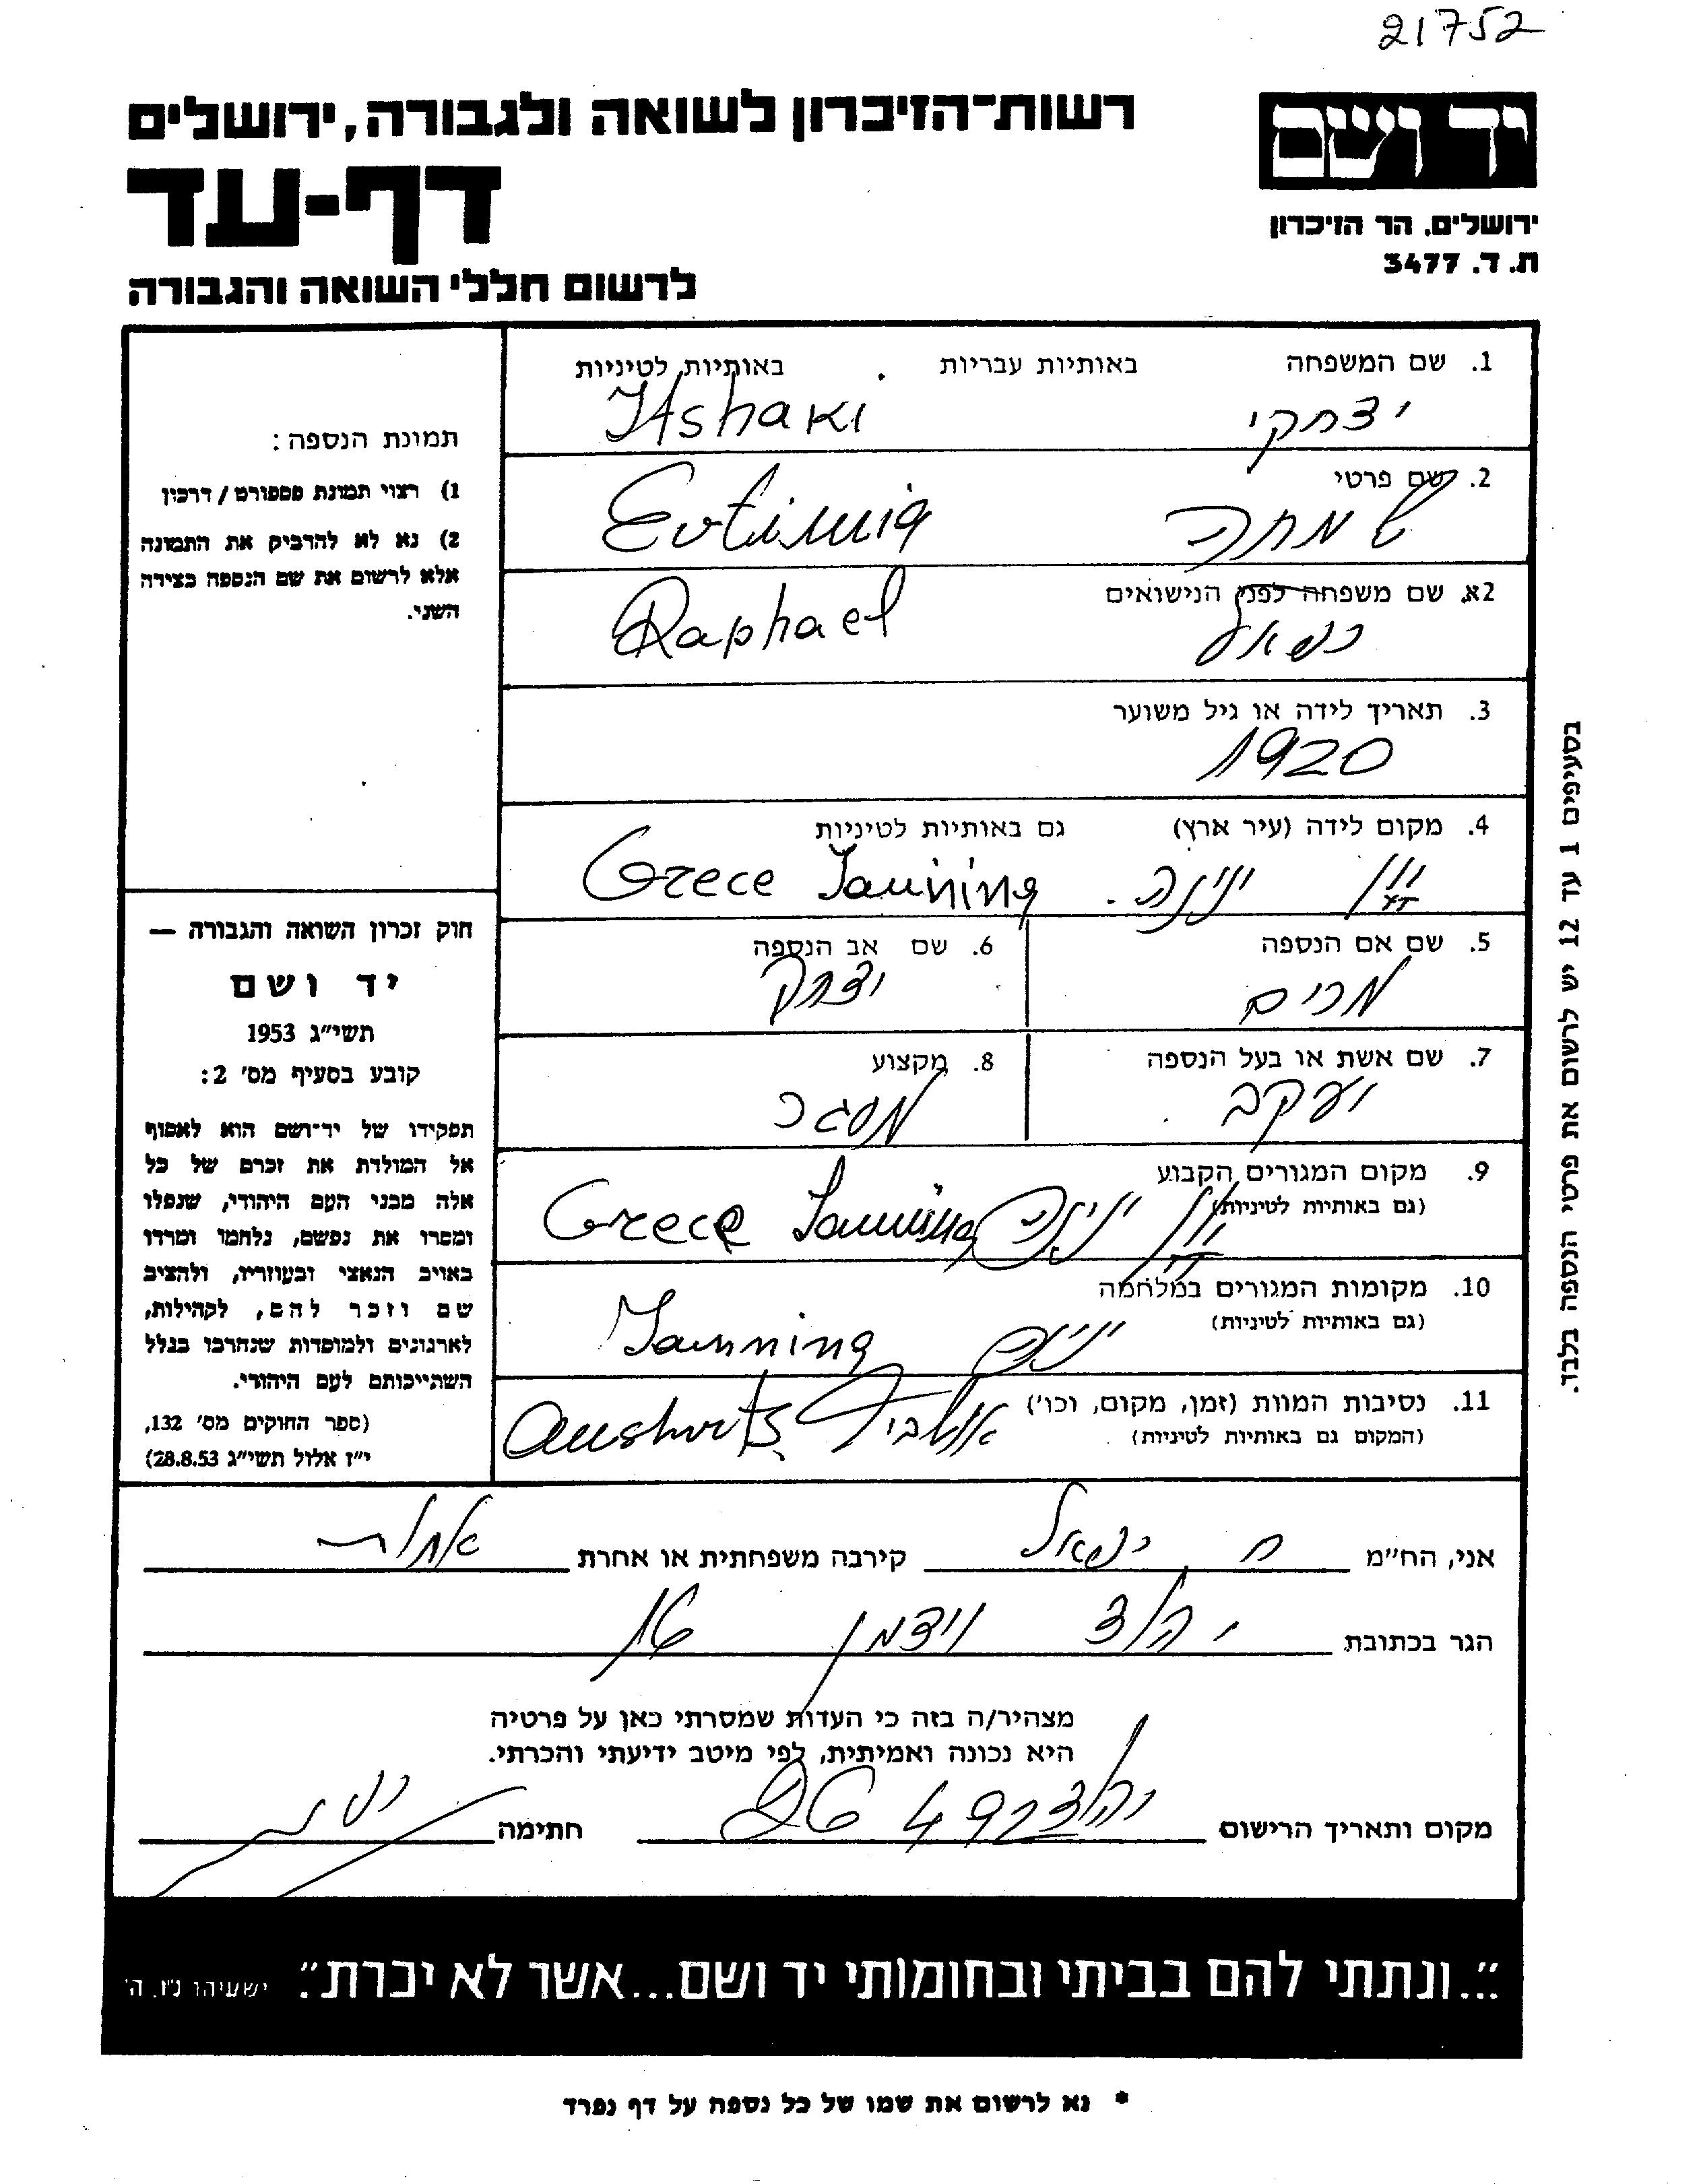 21752
יד ושם
ירושלים. הר הזיכרון
ת. ד. 3477
רשות־הזיכרון לשואה ולגבורה, ירושלים
דף-עד
לרשום חללי השואה והגבורה
1. שם המשפחה באותיות עבריות באותיות לטיניות
יצחקי Itshaki
2. שם פרטי
שמחה Eutimia
2א. שם משפחה לפני הנישואים
רפאל Raphael
3. תאריך לידה או גיל משוער
1920
4. מקום לידה (עיר ארץ) גם באותיות לטיניות
יון ינינה. Grece Jannina
5. שם אם הנספה
מרים
6. שם אב הנספה
יצחק
7. שם אשת או בעל הנספה
יעקב
8. מקצוע
מסגר
9. מקום המגורים הקבוע
(גם באותיות לטיניות)
יון ינינה Grece Jannina
10. מקומות המגורים במלחמה
(גם באותיות לטיניות)
Jannina
11. נסיבות המוות (זמן, מקום, וכו')
(המקום גם באותיות לטיניות)
אושביץ Aushvitz
תמונת הנספה:
1) רצוי תמונת פספורט / דרכון
2) נא לא להדביק את התמונה
אלא לרשום את שם הנספה בצידה
השני.
חוק זכרון השואה והגבורה —
יד ושם
תשי״ג 1953
קובע בסעיף מס' 2:
תפקידו של יד־ושם הוא לאסוף
אל המולדת את זכרם של כל
אלה מבני העם היהודי, שנפלו
ומסרו את נפשם, נלחמו ומרדו
באויב הנאצי ובעוזריו, ולהציב
שם וזכר להם, לקהילות,
לארגונים ולמוסדות שנחרבו בגלל
השתייכותם לעם היהודי.
(ספר החוקים מס' 132,
י״ז אלול תשי״ג 28.8.53)
בסעיפים 1 עד 12 יש לרשום את פרטי הנספה בלבד.
אני, הח״מ ח. רפאל קירבה משפחתית או אחרת אחות
הגר בכתובת יהוד ויצמן 16
מצהיר/ה בזה כי העדות שמסרתי כאן על פרטיה
היא נכונה ואמיתית, לפי מיטב ידיעתי והכרתי.
מקום ותאריך הרישום יהוד חתימה
"...ונתתי להם בביתי ובחומותי יד ושם...אשר לא יכרת". ישעיהו נ״ו. ה'
* נא לרשום את שמו של כל נספה על דף נפרד